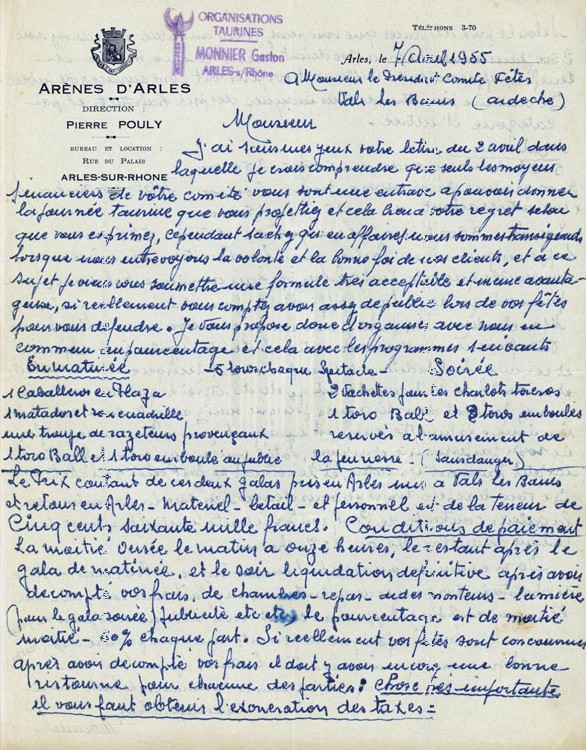 TÉLÉPHONE 3-70
ORGANISATIONS
TAURINES
MONNIER Gaston
ARLES-s/Rhône
ARÈNES D'ARLES
DIRECTION :
PIERRE POULY
BUREAU ET LOCATION :
RUE DU PALAIS
ARLES-SUR-RHONE
Arles, le 7 Avril 1955
a Monsieur le Président Comité Fêtes
Vals Les Bains (Ardèche)
Monsieur
J'ai sous mes yeux votre lettre du 2 avril dans
laquelle je crois comprendre que seuls les moyens
financiers de votre comité vous sont une entrave a pouvoir donner
la journée taurine que vous projettiez et cela à votre regret selon
que vous exprimez, cependant sachez qu'en affaires nous sommes transigeants
lorsque nous entrevoyons la volonté et la bonne foi de nos clients, et a ce
sujet je viens vous soumettre une formule très acceptable et même avanta-
geuse, si reellement vous comptez avoir assez de public lors de vos fêtes
pour vous défendre. Je vous propose donc d'organiser avec nous en
commun au pourcentage et cela avec les programmes suivants
En matinée — 5 toros chaque Spectacle — Soirée
1 Caballero en Plaza
1 matador et son cuadrilla
une troupe de razeteurs provençaux
1 toro Ball et 1 toro emboulé au public
2 Vachettes pour les charlots toreros
1 toro Ball et 2 toros emboulés
réservés a l'amusement de
la jeunesse — (sans danger)
Le Prix coutant de ces deux galas pris en Arles mis a Vals Les Bains
et retour en Arles - Materiel - betail - et personnel est de la teneur de
Cinq cents soixante mille francs. Conditions de paiement
La moitié versée le matin a onze heures, le restant après le
gala de matinée, et le soir liquidation définitive après avoir
decompté vos frais, de chambres - repas - aides monteurs - lumière
(pour le gala soirée) publicité etc etc le pourcentage est de moitié
moitié - 50% chaque part. Si reellement vos fêtes sont courounnées
après avoir decompté vos frais il doit y avoir encore une bonne
ristourne pour chacune des parties : chose très importante
il vous faut obtenir l'exoneration des taxes =